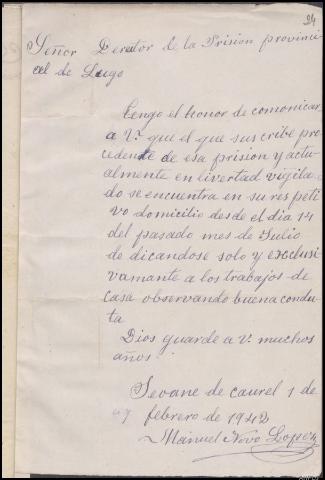 24
Señor Director de la Prision provinci
al de Lugo
Tengo el honor de comunicar
a V. que el que suscribe pro
cedente de esa prision y actu
almente en livertad vigila
do se encuentra en su respeti
vo domicilio desde el dia 14
del pasado mes de Julio
de dicandose solo y exclusi
vamante a los trabajos de
casa observando buena condu
ta
Dios guarde a V. muchos
años
Seoane de caurel 1 de
febrero de 1942
Manuel Novo Lopez